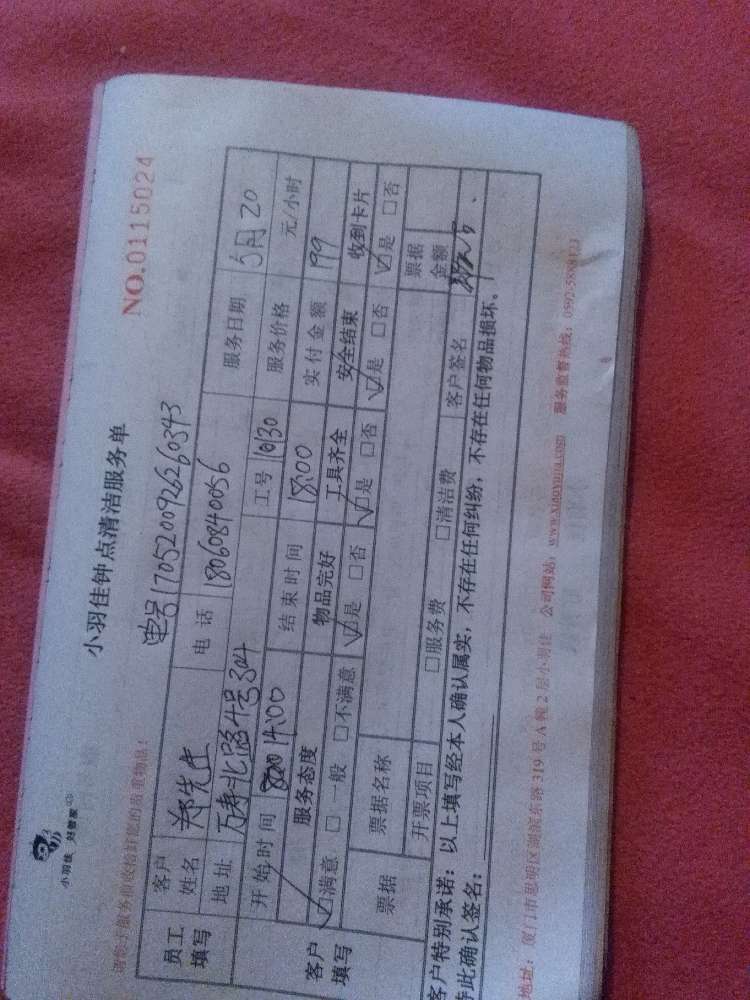 小羽佳 好管家
小羽佳钟点清洁服务单
NO.0115024
单号1705200926260343
员工填写
客户姓名 郑先生 电话 18060840056 服务日期 5月20
地址 万寿北路4号304
开始时间 14:00 结束时间 18:00 工号 服务价格 元/小时
实付金额 199
客户填写
服务态度 物品完好 工具齐全 安全结束 收到卡片
☑满意 □一般 □不满意 ☑是 □否 ☑是 □否 ☑是 □否 ☑是 □否
票据 票据名称 票据金额
开票项目 □服务费 □清洁费 客户签名
客户特别承诺：以上填写经本人确认属实，不存在任何纠纷，不存在任何物品损坏。
特此确认签名：
地址：厦门市思明区湖滨东路319号A幢2层小羽佳 公司网站：www.xiaoyujia.com 服务监督热线：